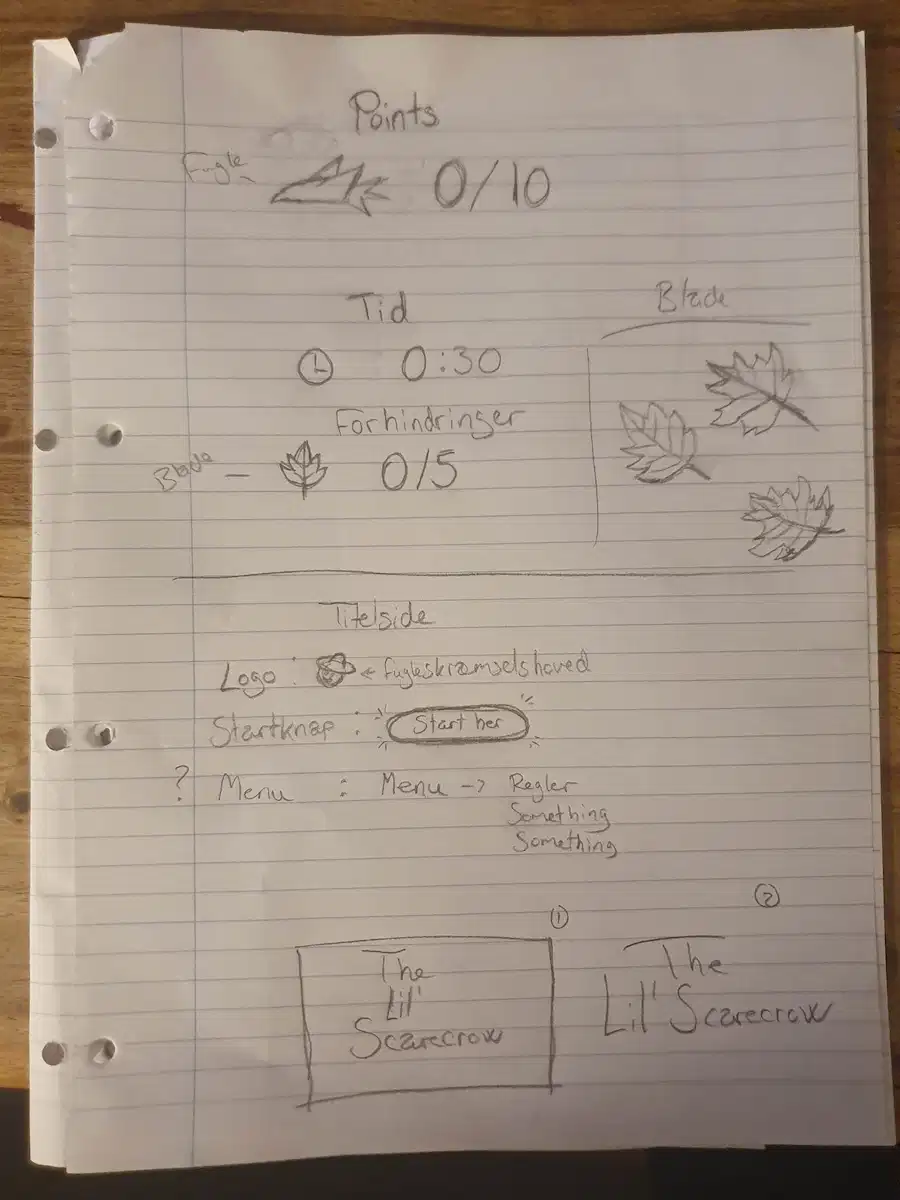 Points
Fugle 0/10
Tid
0:30
Forhindringer
Blade – 0/5
Blade
Titelside
Logo : ← fugleskræmselshoved
Startknap : Start her
? Menu : Menu -> Regler
Something
Something
①
The
Lil'
Scarecrow
②
The
Lil' Scarecrow